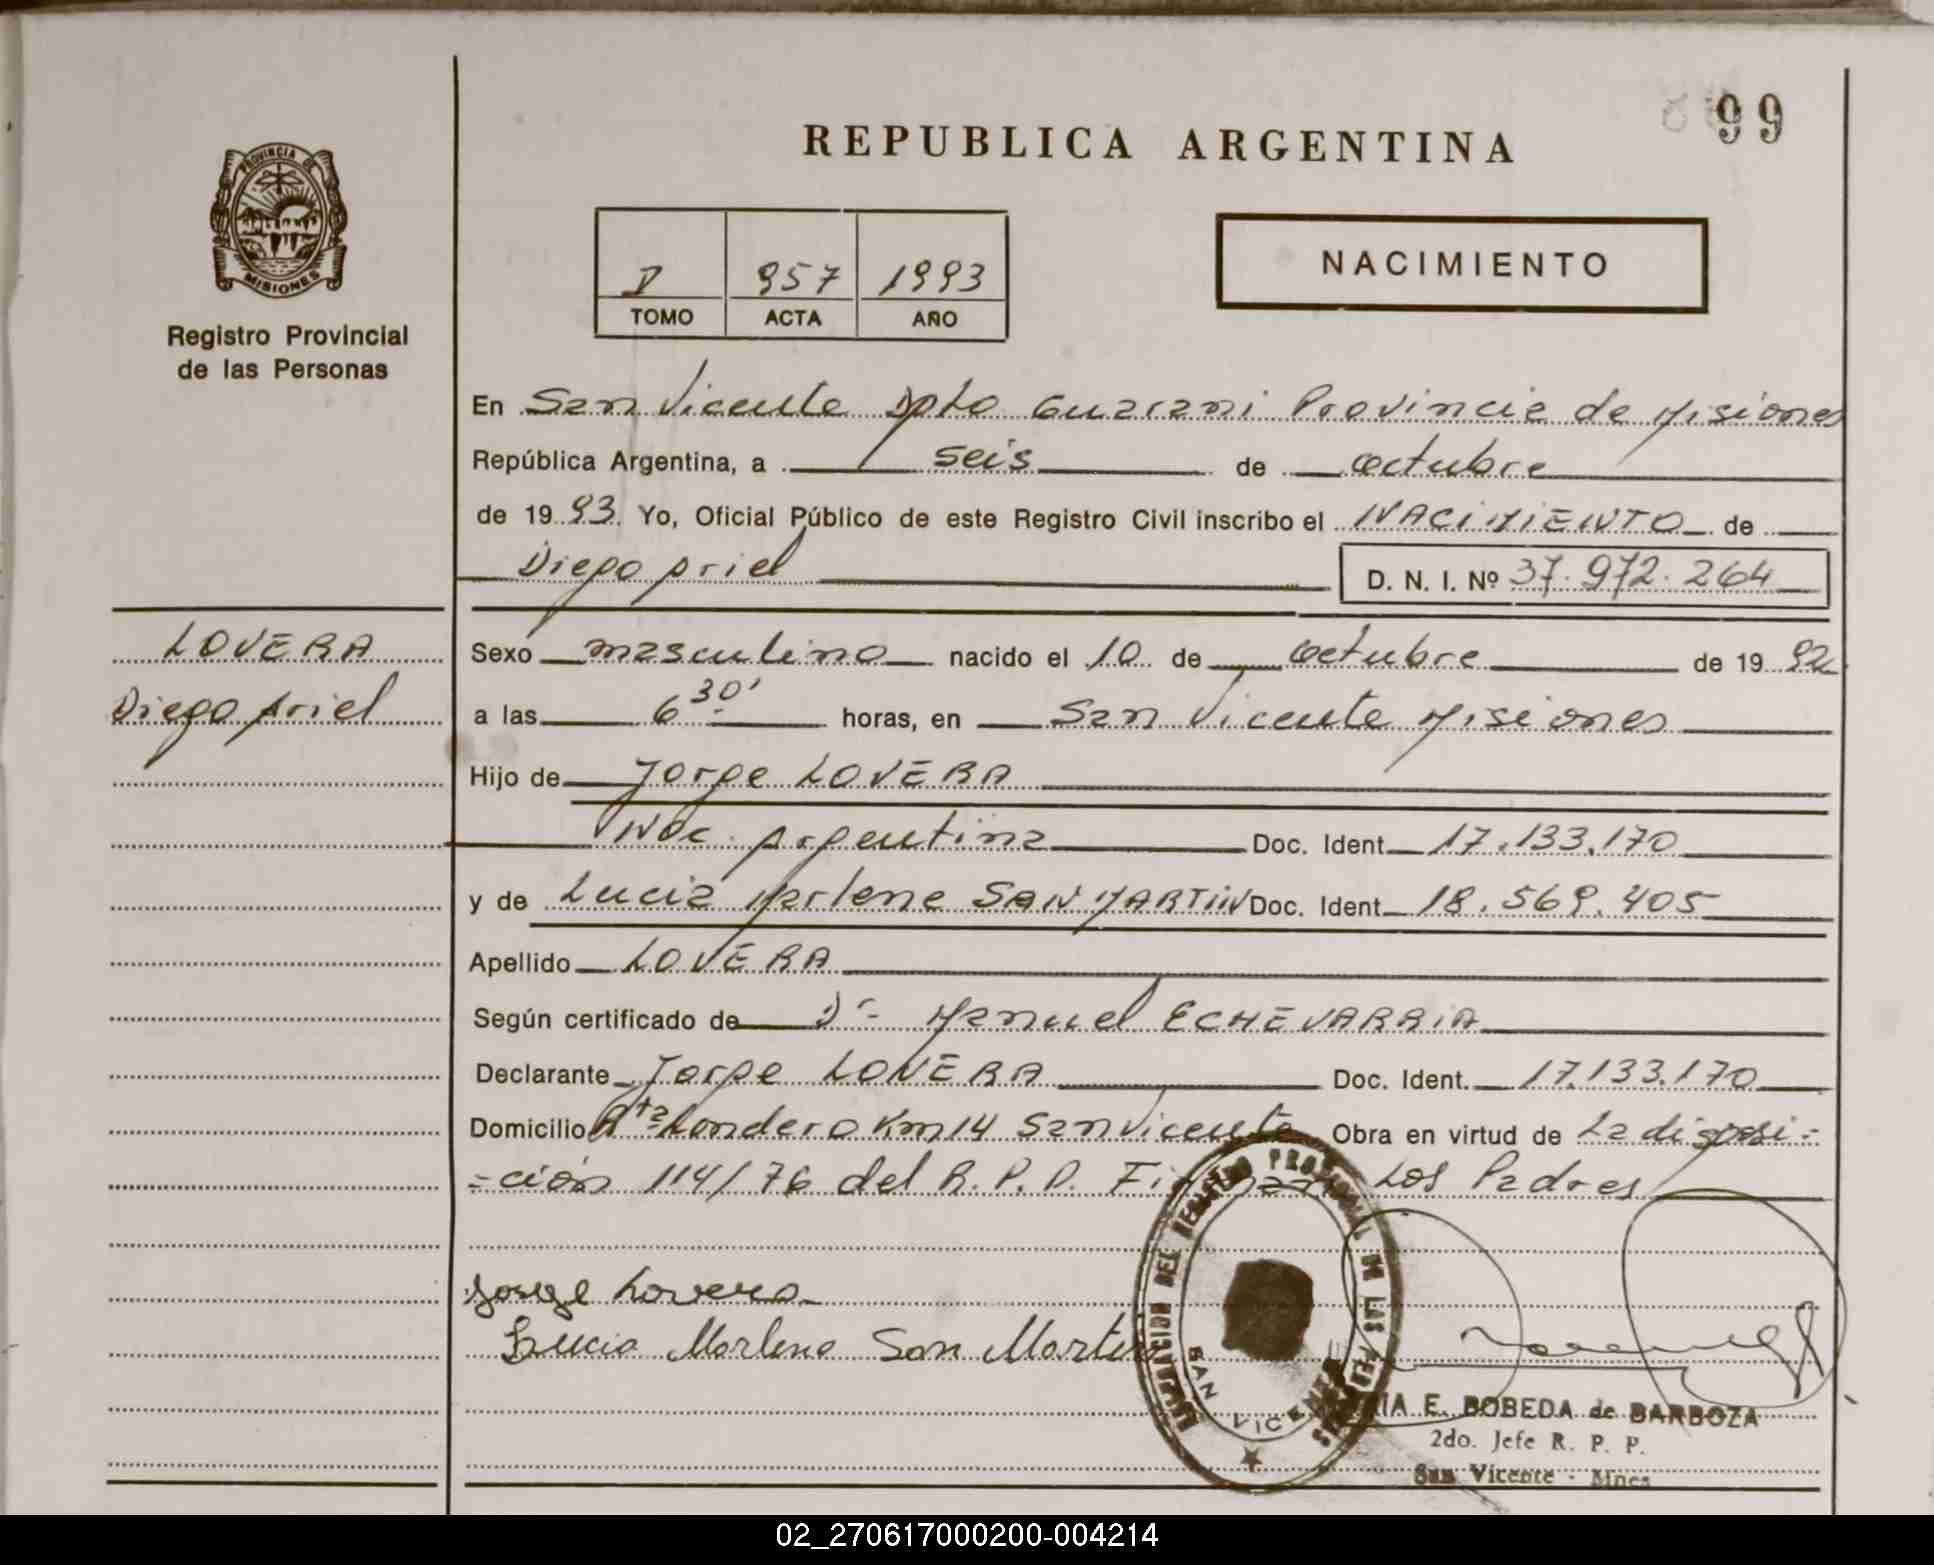 99
REPUBLICA ARGENTINA
PROVINCIA DE
MISIONES
Registro Provincial
de las Personas
NACIMIENTO
957 1993
TOMO ACTA AÑO
En San Vicente Dpto Guarani Provincia de Misiones
República Argentina, a seis de octubre
de 1993. Yo, Oficial Público de este Registro Civil inscribo el NACIMIENTO de
Diego Ariel D. N. I. Nº 37.972.264
LOVERA
Diego Ariel
Sexo masculino nacido el 10 de octubre de 1992
a las 6 30' horas, en San Vicente Misiones
Hijo de Jorge LOVERA
Nac. Argentina Doc. Ident 17.133.170
y de Lucia Marlene SAN MARTIN Doc. Ident 18.569.405
Apellido LOVERA
Según certificado de Dr Manuel ECHEVARRIA
Declarante Jorge LOVERA Doc. Ident. 17.133.170
Domicilio Rta Londero Km 14 San Vicente Obra en virtud de La disposi=
=ción 114/76 del R.P.P. Los Padres
Jorge Lovera
Lucia Marlene San Martin
DEL REGISTRO PROVINCIAL DE LAS
SAN VICENTE
E. BOBEDA de BARBOZA
2do. Jefe R. P. P.
San Vicente - Mnes
02_270617000200-004214